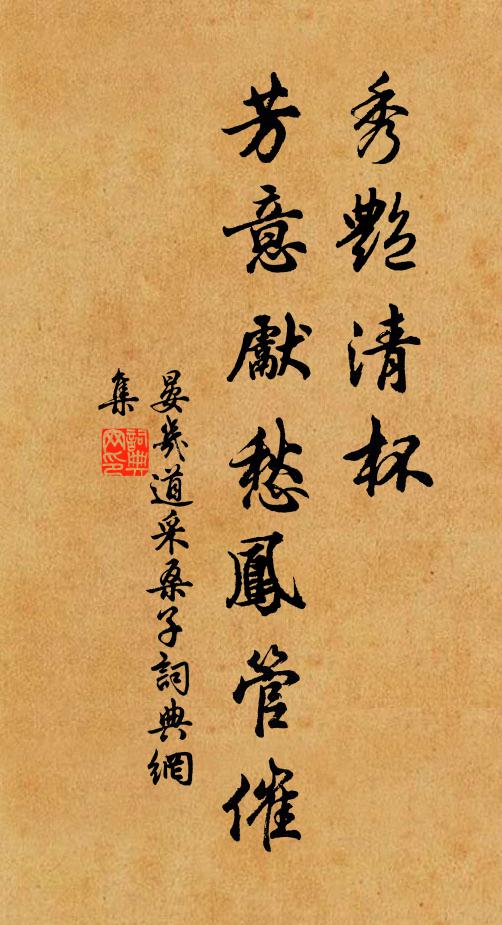 秀艷清杯
芳意獻愁鳳管催
晏幾道采桑子詞典網
集
詞典網印